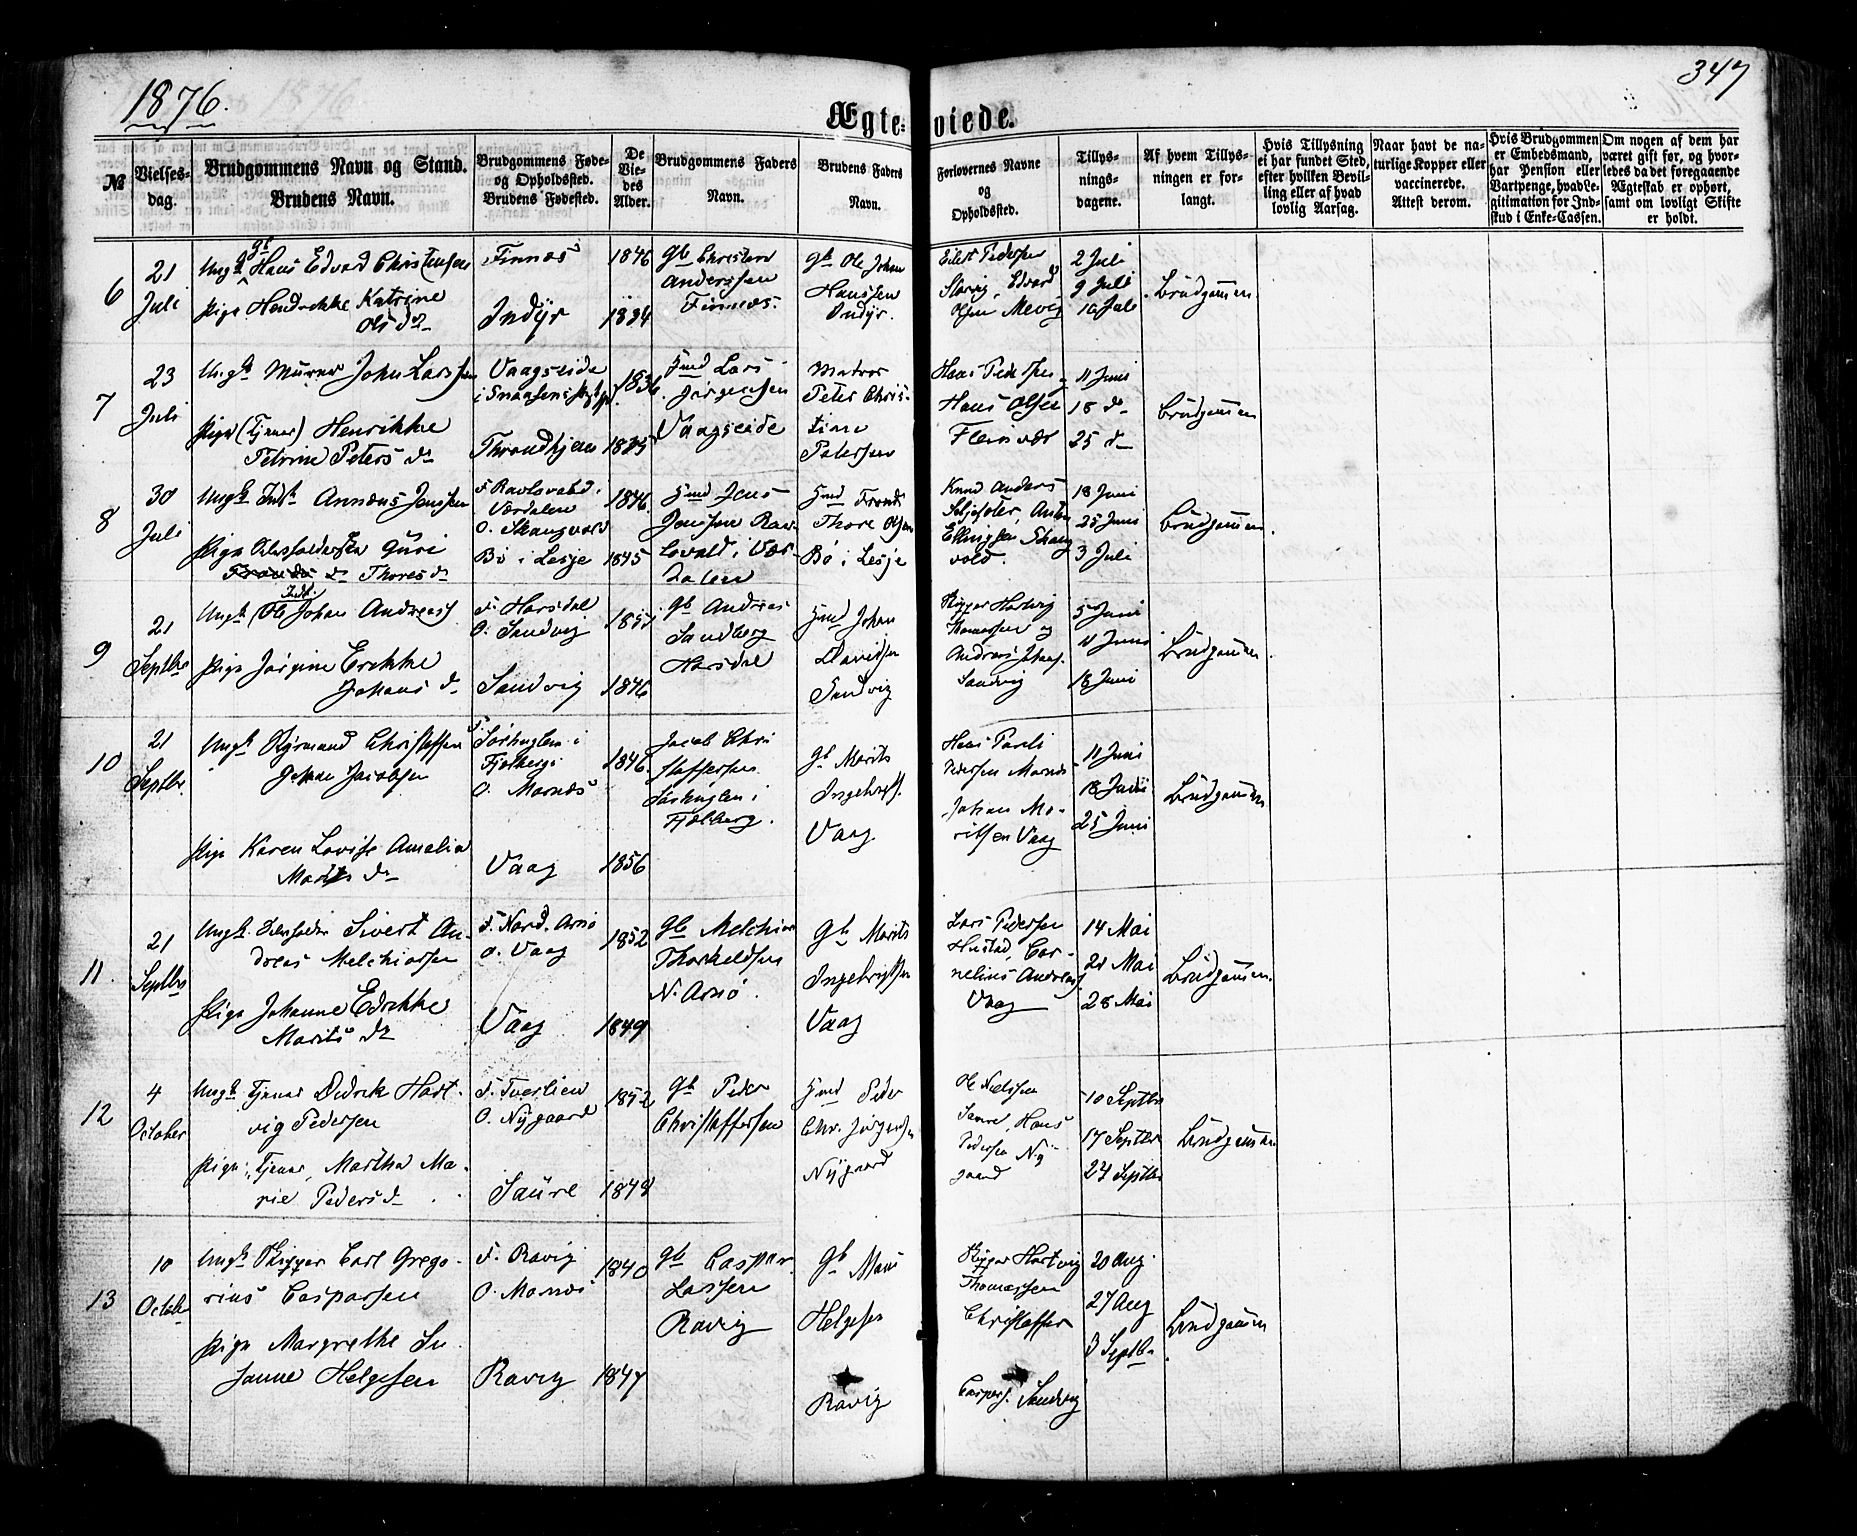 1876.
347
Ægte-viede.
№
Vielses-dag.
Brudgommens Navn og Stand.
Brudens Navn.
Brudgommens Føde-
og Opholdssted.
Brudens Fødested.
De
Vie-
des
Alder.
Brudgommens Faders
Navn.
Brudens Faders
Navn.
Forlovernes Navne
og
Opholdssted.
Tillys-
nings-
dagene.
Af hvem Tillys-
ningen er for-
langt.
Hvis Tillysning
ei har fundet Sted,
efter hvilken Bevil-
ling eller af hvad
lovlig Aarsag.
Naar havt de na-
turlige Kopper eller
vaccinerede.
Attest derom.
Hvis Brudgommen
er Embedsmand,
har Pension eller
Vartpenge, hvad Le-
gitimation for Ind-
skud i Enke-Cassen.
Om nogen af dem har
været gift før, og hvor-
ledes da det foregaaende
Ægteskab er ophørt,
samt om lovligt Skifte
er holdt.
6
21
Juli
Ungk gb Hans Edvard Christensen
Pige Hendrikke Katrine
Ols dr
Finnæs
Indyr
1846
1834
Gb Christen
Anderssen
Finnæs.
Gb Ole Johan
Hanssen
Indyr.
Eilert Pedersen
Storvig, Edvard
Olsen Mevig
2 Juli
9 Juli
16 Juli
Brudgommen
7
23
Juli
Ungk Murer John Larssen
Pige (Tjener) Henrikke
Petrine Peters dr
Vaagseide
i Snaasens
Throndhjem
1836
1835
Hmd Lars
Jørgensen
Vaagseide
Matros
Peter Chris-
tian
Petersen
Hans Pedersen
Hans Olsen
Fleinvær
11 Juni
18 dr
25 dr
Brudgommen
8
30
Juli
Ungk Indst Annæus Jenssen
Pige Guri
Thores dr
F. Ravlovald
Værdalen
O. Skaugvold
Bø i Lesje
1846.
1845
Hmd Jens
Jenssen Rav-
lovald i Vær-
dalen
Hmd
Thore Olsen
Bø i Lesje
Knud Anders
Anton
Ellingsen Skaug-
vold.
18 Juni
25 Juni
3 Juli
Brudgommen
9
21
Septbr
Ungk (Indst. Ole Johan Andreas
Pige Jørgine Erikke
Johans dr
F. Horsdal
O. Sandvig
Sandvig
1851
1846
Gb Andreas
Sandberg
Horsdal
Hmd Johan
Davidsen
Sandvig
Skipper Hartvig
Thomassen og
Andreas Johans.
Sandvig
5 Juni
11 Juni
18 Juni
Brudgommen.
10
21
Septbr.
Ungk Styrmand Christoffer
Johan Jacobsen
Pige Karen Lovise Amalia
Morits dr
F. Sørhuglen i
Fjelberg
O. Mornæs
Vaag
1846.
1856
Jacob Chri
stoffersen
Sørhuglen i
Fjelberg.
Gb Morits
Ingebrigts.
Vaag
Hans Pareli
Pedersen Mornæs
Johan Mo-
ritsen Vaag
11 Juni
18 Juni
25 Juni
Brudgommen
11.
21
Septbr
Ungk. Sivert An-
dreas Melchiorsen
Pige Johanne Edrikke
Morits dr
F. Nord. Arnø
O. Vaag
Vaag
1852
1849
Gb Melchior
Thorkeldsen
N. Arnø.
Gb Morits
Ingebrigtsen
Vaag
Lars Pedersen
Hustad, Cor-
nelius Andreas.
Vaag
14 Mai
21 Mai
28 Mai
Brudgommen.
12
4
October
Ungk Tjener Didrik Hart-
vig Pedersen
Pige, Tjener, Martha Ma-
rie Pedersdr
F. Tverlien
O. Nygaard
Saure
1852
1849
Gb Peder
Christoffersen
Hmd Peder
Chr. Jørgensen
Nygaard
Ole Nielssen
Saure, Hans
Pedersen Ny-
gaard
10 Septbr
17 Septbr
24 Septbr
Brudgommen
13
10
Octobr
Ungk Skipper Carl Grego-
rius Casparsen
Pige Margrethe Su
sanne Helgesen
F. Ravig
O. Mornæs
Ravig
1840
1847
Gb Caspar
Larsen
Ravig
Gb Mons
Helgesen
Ravig
Skipper Hartvig
Thomassen
Christoffer
Caspers. Sandvig
20 Aug.
27 Aug
3 Septbr.
Brudgommen